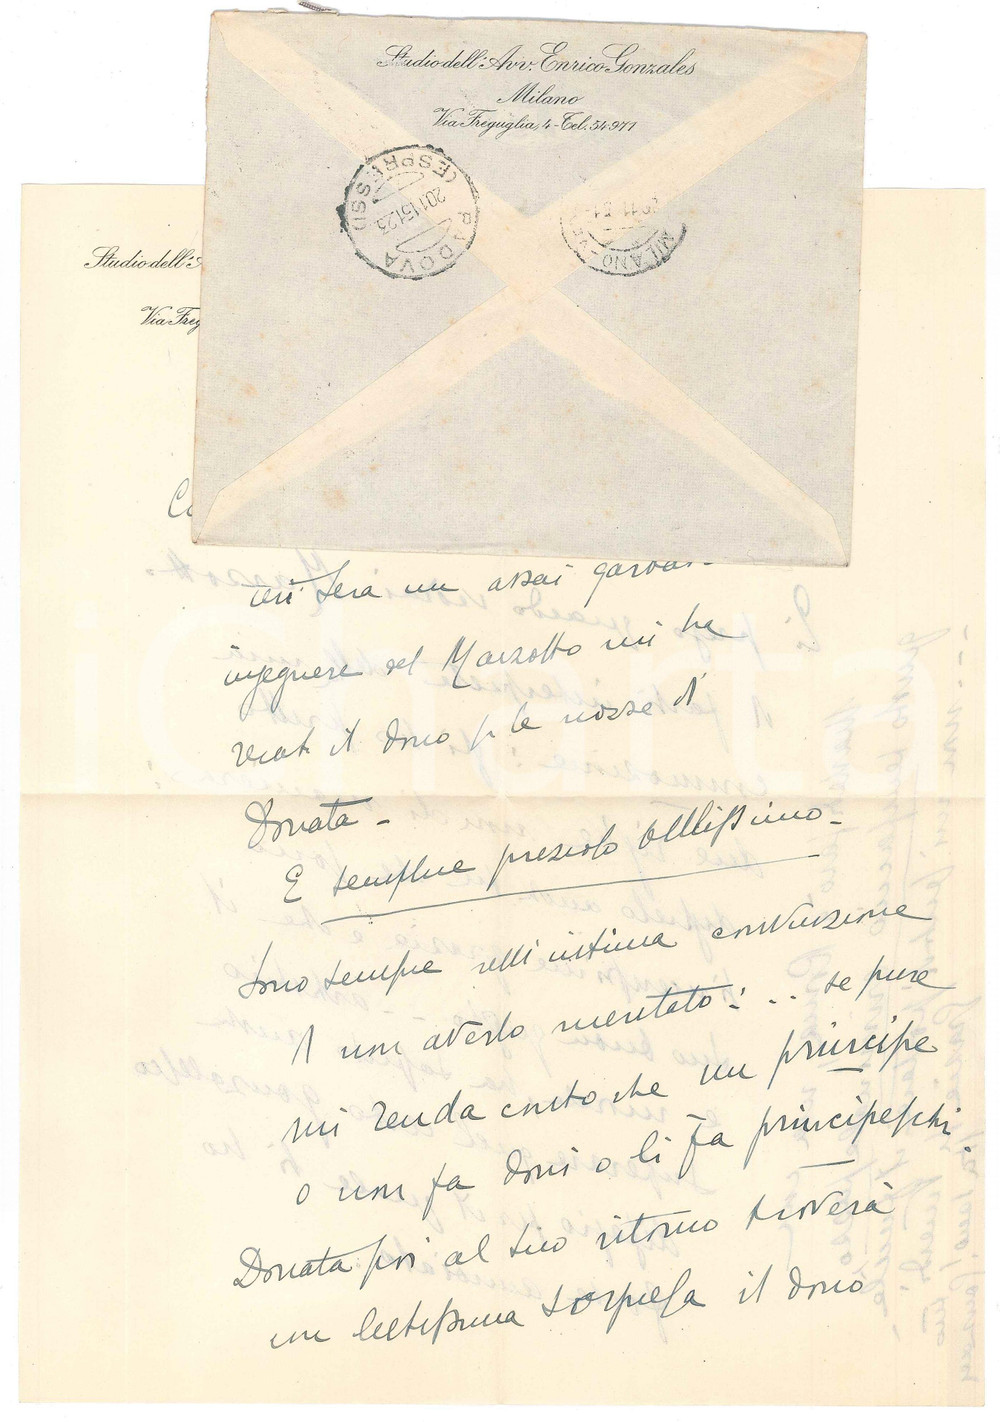 Studio dell'Avv. Enrico Gonzales
Milano
Via Freguglia, 4 - Tel. 54971
PADOVA
(ESPRESSI)
20.11.51.23
MILANO-VE
11.51
Studio dell'A
Via Freg
Ca
ieri sera un assai garbat
ingegnere del Marzotto mi ha
recato il dono p le nozze di
Donata -
E semplice prezioso bellissimo -
Sono sempre nell'intima convinzione
di non averlo meritato! .. se pure
mi renda conto che un principe
o non fa doni o li fa principeschi.
Donata poi al suo ritorno troverà
con lietissima sorpresa il dono